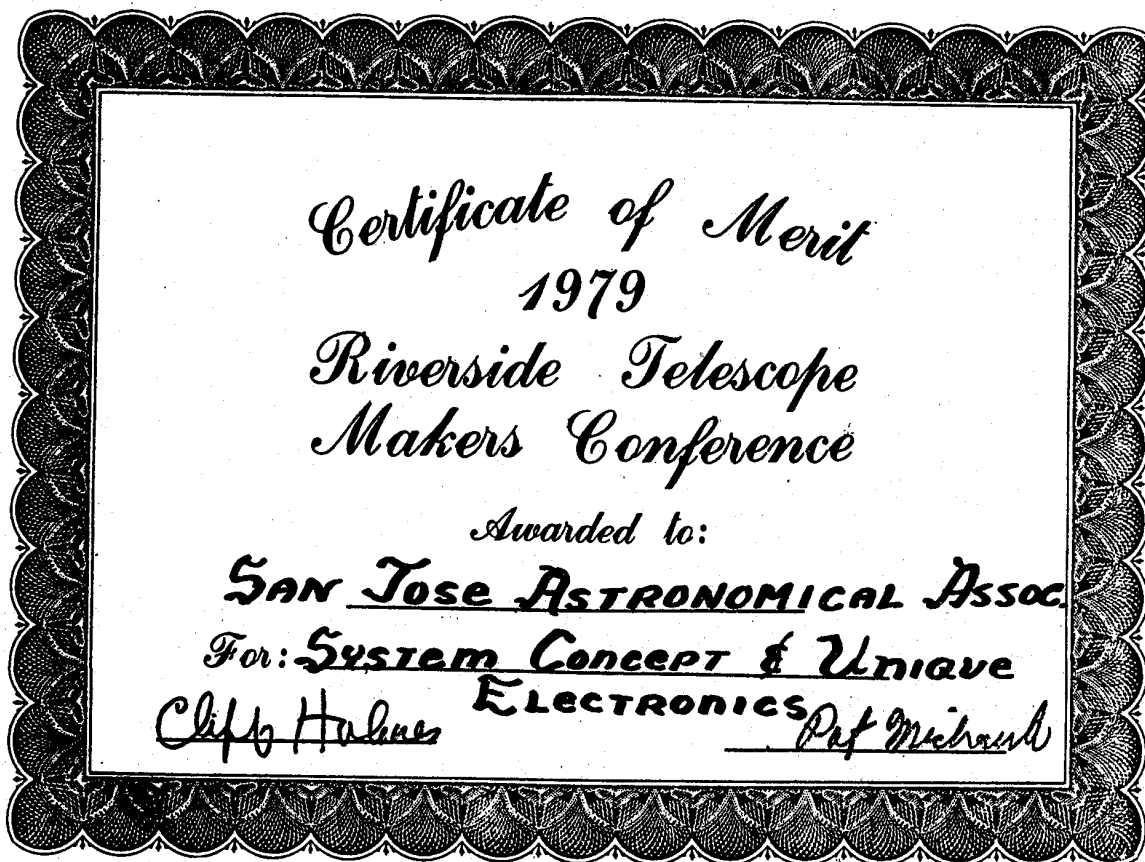 Certificate of Merit
1979
Riverside Telescope
Makers Conference
Awarded to:
SAN JOSE ASTRONOMICAL ASSOC.
For: SYSTEM CONCEPT & UNIQUE
ELECTRONICS
Cliff Holmes Pat